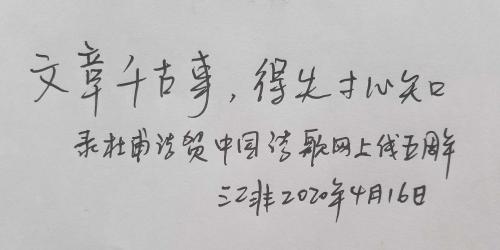 文章千古事，得失寸心知
录杜甫诗贺中国诗歌网上线五周年
江非2020年4月16日